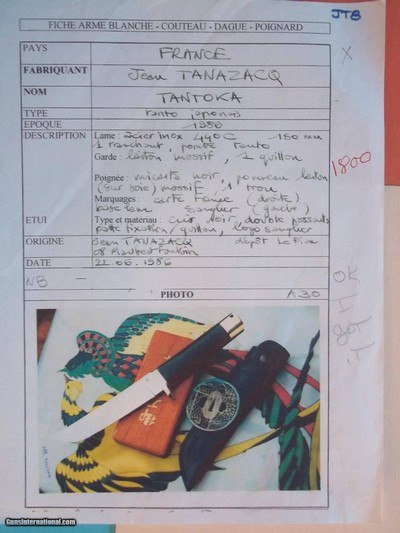 JTB
FICHE ARME BLANCHE - COUTEAU - DAGUE - POIGNARD
PAYS FRANCE X
FABRIQUANT Jean TANAZACQ
NOM TANTOKA
TYPE tanto japonais
EPOQUE 1980
DESCRIPTION Lame : acier inox 440C 150 mm
1 tranchant, pointe tanto
Garde : laiton massif, 1 quillon
1800
Poignée : micarta noir, pommeau laiton
(sur soie) massif, 1 trou
Marquages : carte France (droite)
sanglier (gauche)
ETUI Type et matériau : cuir noir, double passants
patte fixation / quillon, logo sanglier
ORIGINE Jean TANAZACQ dépôt Le Pion
08
DATE 22.06.1986
NB -
OK
I
got
it
PHOTO A30
GunsInternational.com